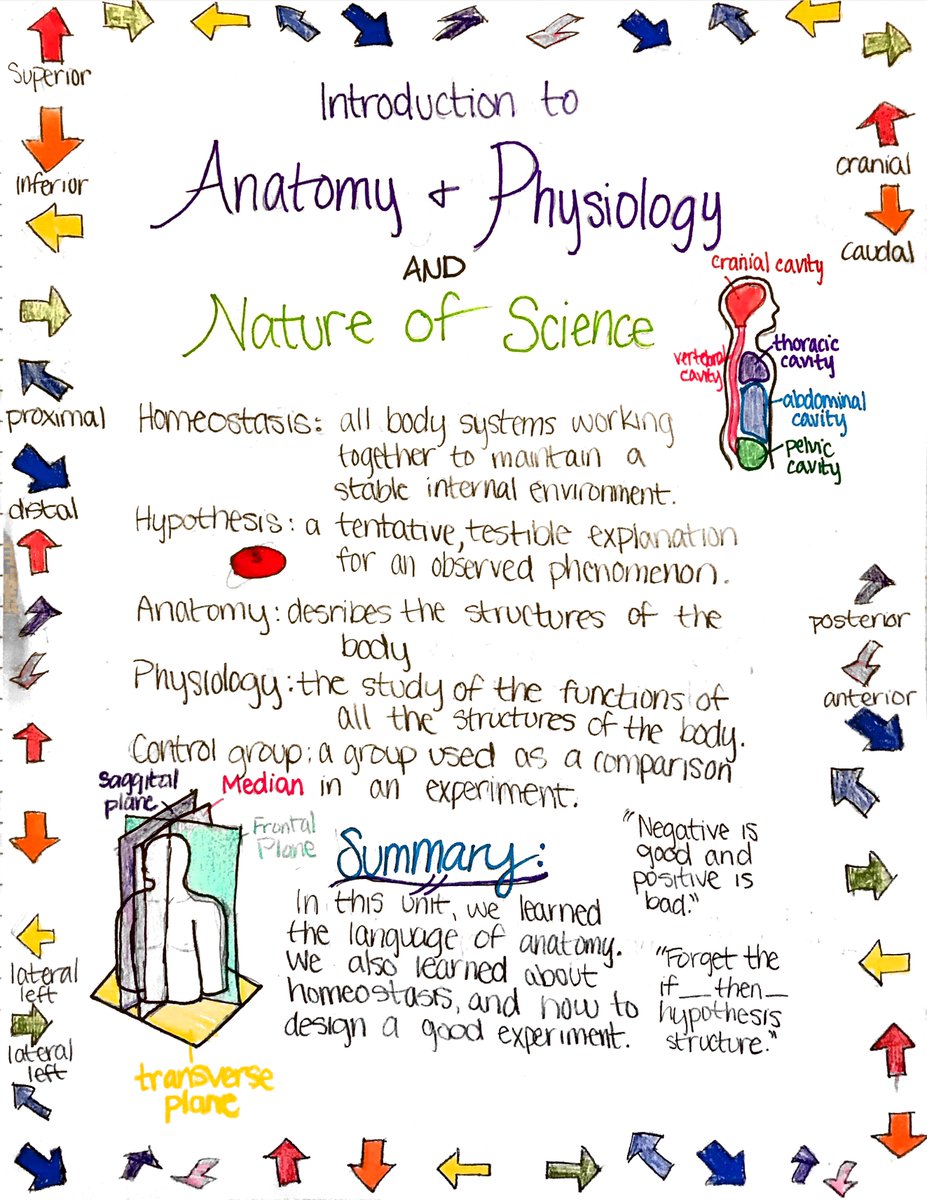 Superior
Inferior
proximal
distal
lateral
left
lateral
left
Introduction to
Anatomy + Physiology
AND
Nature of Science
cranial
caudal
cranial cavity
vertebral
cavity
thoracic
cavity
abdominal
cavity
pelvic
cavity
Homeostasis: all body systems working
together to maintain a
stable internal environment.
Hypothesis: a tentative, testible explanation
for an observed phenomenon.
Anatomy: desribes the structures of the
body
Physiology: the study of the functions of
all the structures of the body.
Control group: a group used as a comparison
in an experiment.
posterior
anterior
Saggital
plane
Median
Frontal
Plane
transverse
plane
Summary:
In this unit, we learned
the language of anatomy.
We also learned about
homeostasis, and how to
design a good experiment.
"Negative is
good and
positive is
bad."
"Forget the
if __ then __
hypothesis
structure."